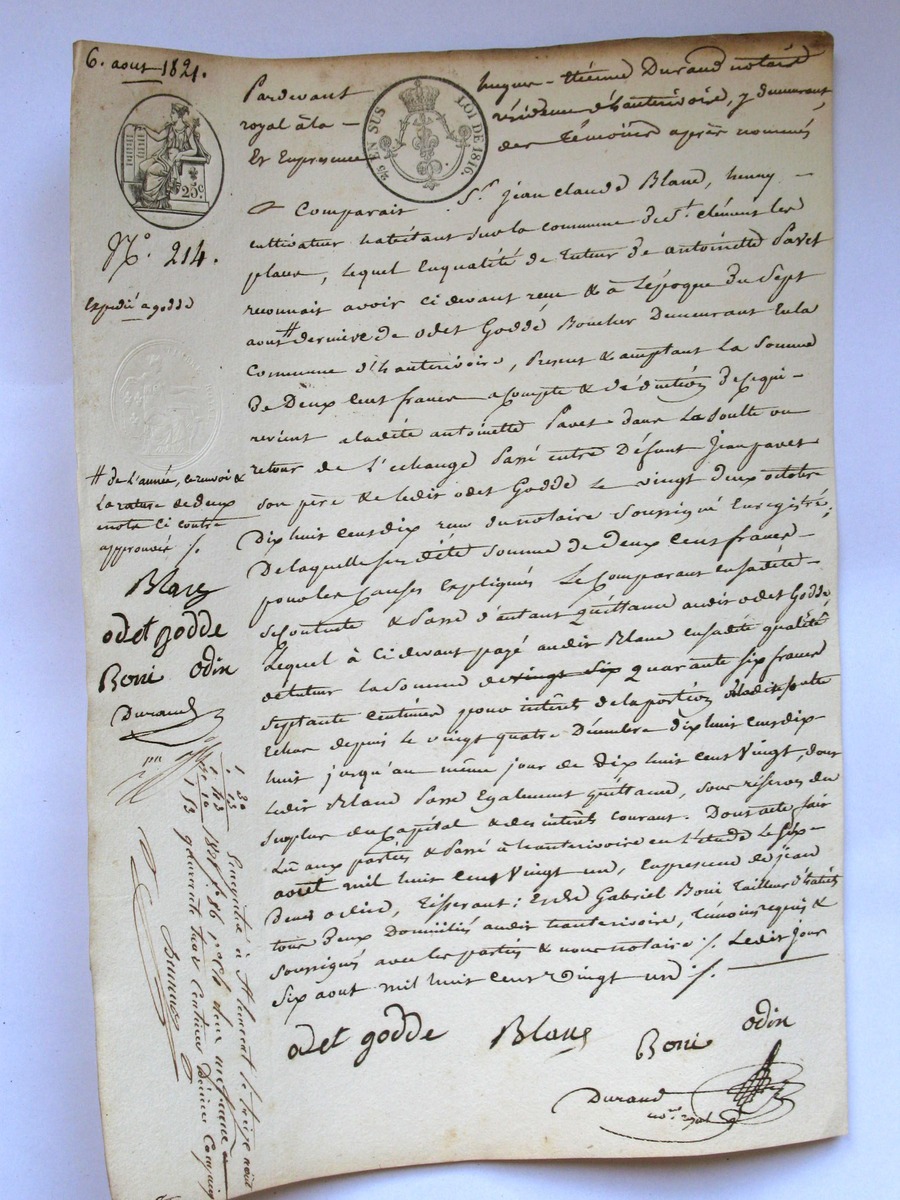 6. aout 1821.
Pardevant hugues-Etienne Durand notaire
royal à la résidence d'hauterivoire, y demeurant
Et En présence des témoins après nommés
5/6 EN SUS LOI DE 1816.
25c.
N.º 214.
Expedié a godde
Comparait Sr. jean claude Blanc,
cultivateur habitant sur la commune de St. clément les
places, lequel En qualité de tuteur de antoinette Pavet
reconnait avoir ci devant reçu & à L'époque du Sept
aout # dernier de odet Goddé Boucher Demeurant En la
Commune d'hauterivoire, Present & acceptant la Somme
De Deux Cent francs a compte & déduction De ce qui
revient a ladite antoinette Pavet dans La Soulte ou
retour de L'échange Passé entre Défunt Jean pavet
son père & ledit odet Goddé Le vingt deux octobre
Dix huit cent dix reçu du notaire soussigné Enregistré,
De laquelle susdite somme de deux Cent francs
pour les Causes Expliquées Le Comparant En sadite
se contente & Passe d'autant quittance audit odet Goddé,
Lequel à ci devant payé audit Blanc En sadite qualité
de tuteur la somme de vingt Six quarante six francs
septante centimes pour intérêt de la portion de ladite soulte
Echus depuis le vingt quatre Décembre dix huit cent dix
huit jusqu'au même jour de Dix huit Cent Vingt, dont
ledit Blanc Passe Egalement quittance, sous réserves du
surplus du Capital & des intérêts courant. Dont acte fait
Lu aux parties & Passé à hauterivoire en L'étude Le Six
aout mil huit cent Vingt un, En presence de jean
odin, Tisserant; Et de Gabriel Boni Tailleur d'habits
tous Deux Domiciliés audit hauterivoire, témoins requis &
soussignés avec les parties & nous notaire ./. Ledit jour
Six aout mil huit cent Vingt un ./.
# de L'année, ce renvoi &
La rature de deux
mots Ci contre
approuvés ./.
Blanc
odet godde
Boni odin
Durand
odet godde Blanc Boni odin
Durand
not. royal